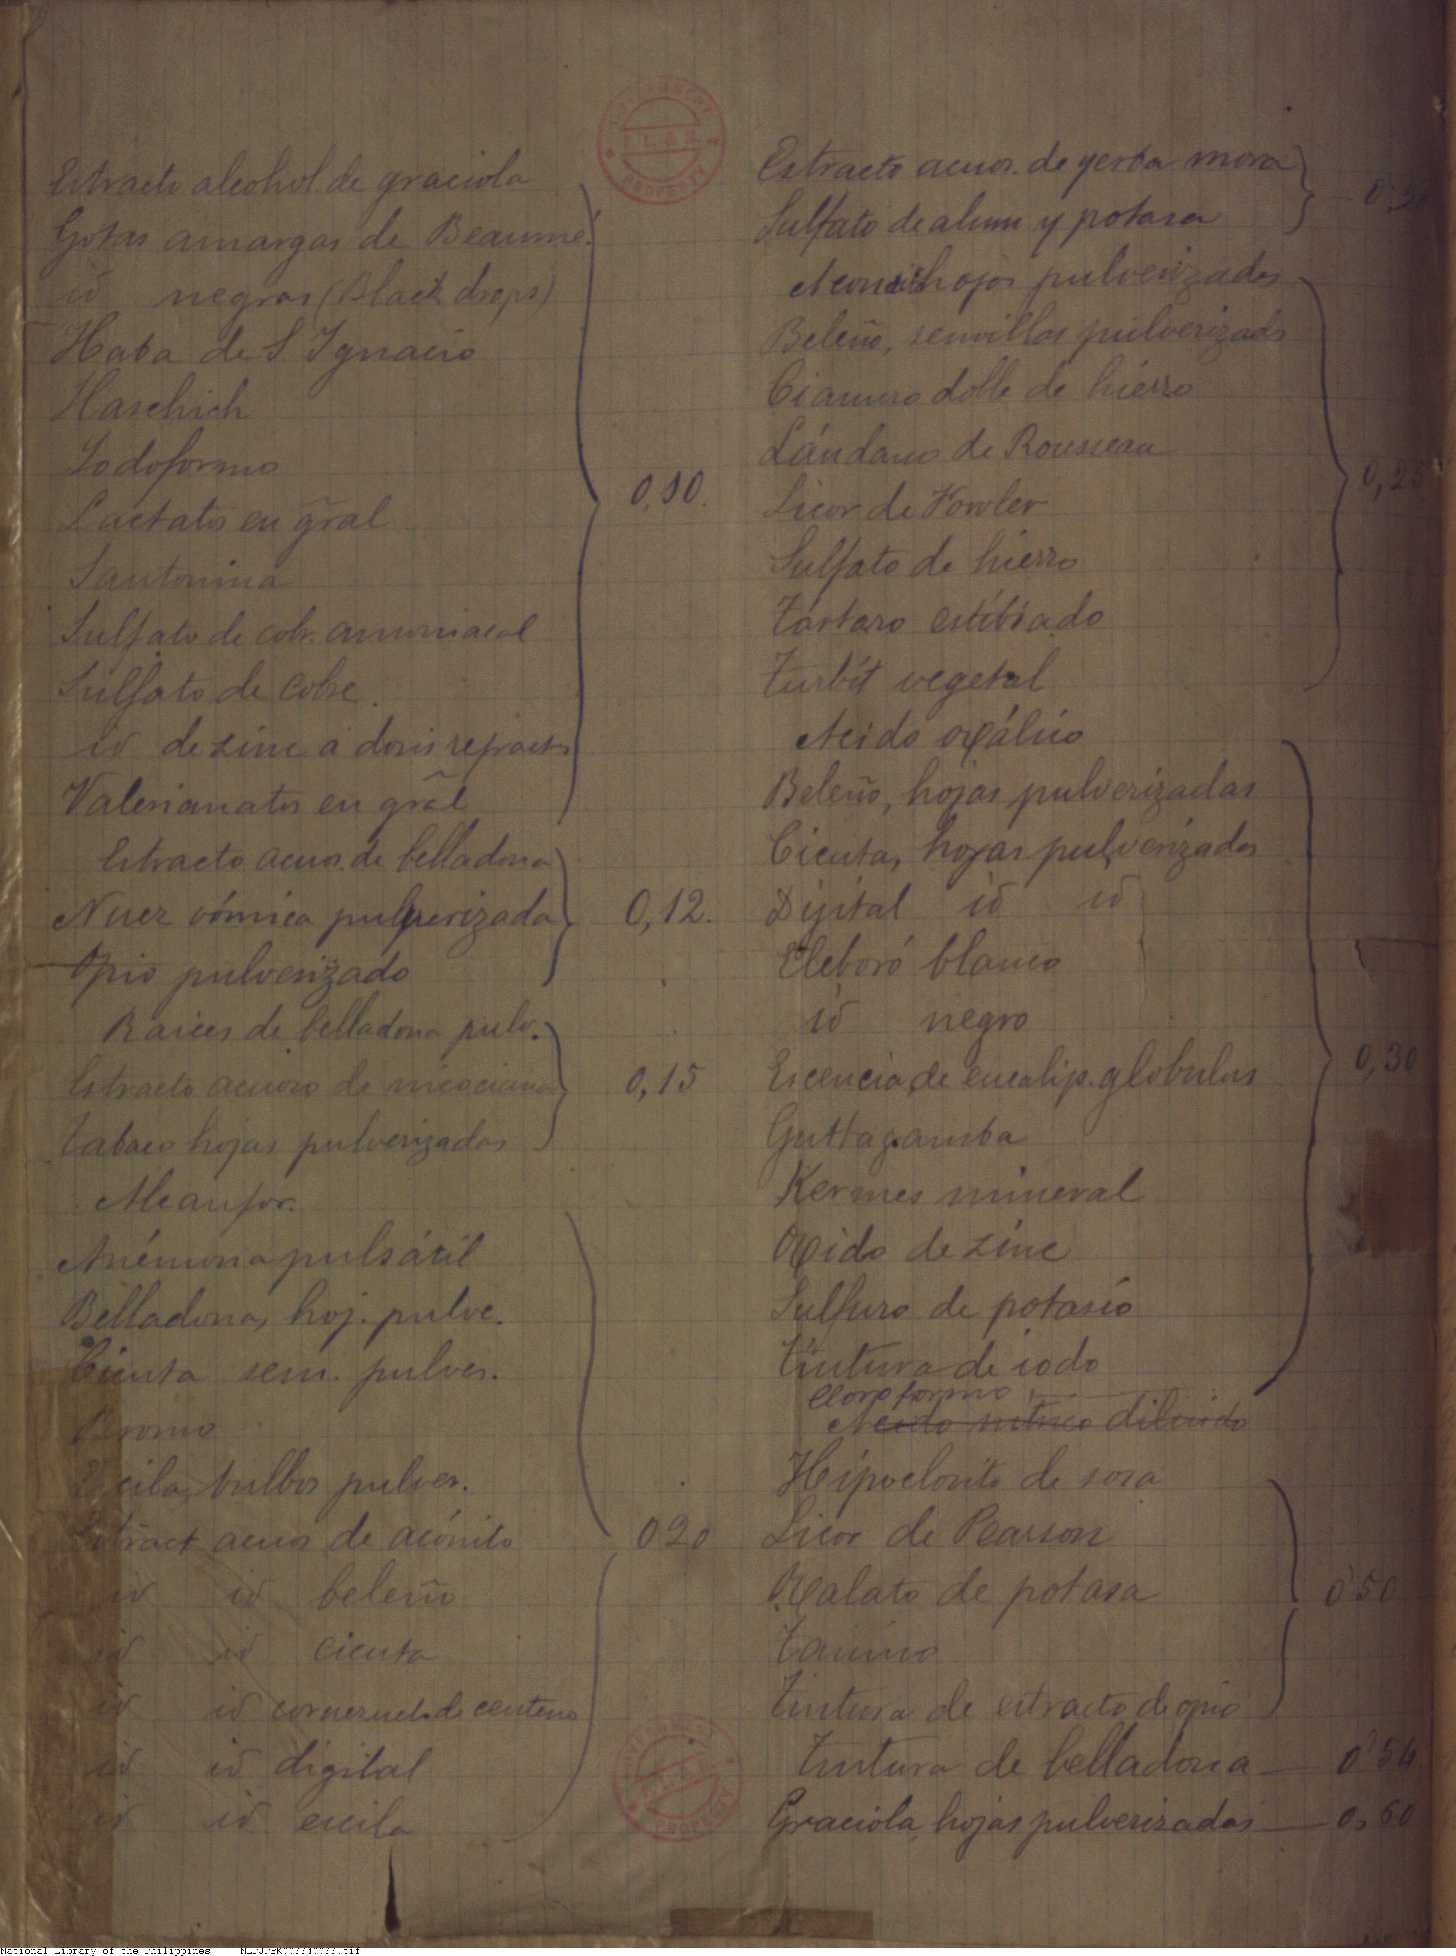 Estracto alcohol. de graciola
Gotas amargas de Beaumé.
id negras (Black drops)
Haba de S. Ignacio
Haschich
Iodoformo
Lactatos en gral
Santonina
Sulfato de cobr. amoniacal
Sulfato de cobre.
id de zinc a dosis refract
Valerianatos en gral
0,10.
Estracto acuos. de belladona
Nuez vómica pulverizada
Opio pulverizado
0,12.
Raices de belladona pulv.
Estracto acuoso de nicociana
Tabaco hojas pulverizadas
0,15
Alcanfor.
Anémona pulsátil
Belladona, hoj. pulve.
Cicuta sem. pulver.
Bromo
Escila, bulbos pulver.
Estract acuos de acónito
id id beleño
id id cicuta
id id cornezuelo de centeno
id id digital
id id escila
020
Estracto acuos. de yerba mora
Sulfato de alum y potasa
Aconito hojas pulverizadas
Beleño, semillas pulverizads
Cianuro doble de hierro
Láudano de Rousseau
Licor de Fowler
Sulfato de hierro
Tártaro estibiado
Turbit vegetal
0,25
Acido oxálico
Beleño, hojas pulverizadas
Cicuta, hojas pulverizadas
Digital id id
Eleboró blanco
id negro
Escencia de eucalip. globulus
Guttagamba
Kermes mineral
Oxido de zinc
Sulfuro de potasio
Tintura de iodo
0,30
Cloroformo
Acido nitrico diluido
Hipoclorito de sosa
Licor de Pearson
Oxalato de potasa
Tanino
Tintura de estracto de opio
0'50
Tintura de belladona — 0'54
Graciola, hojas pulverizadas — 0,60
GOVERNMENT
PROPERTY
National Library of the Philippines